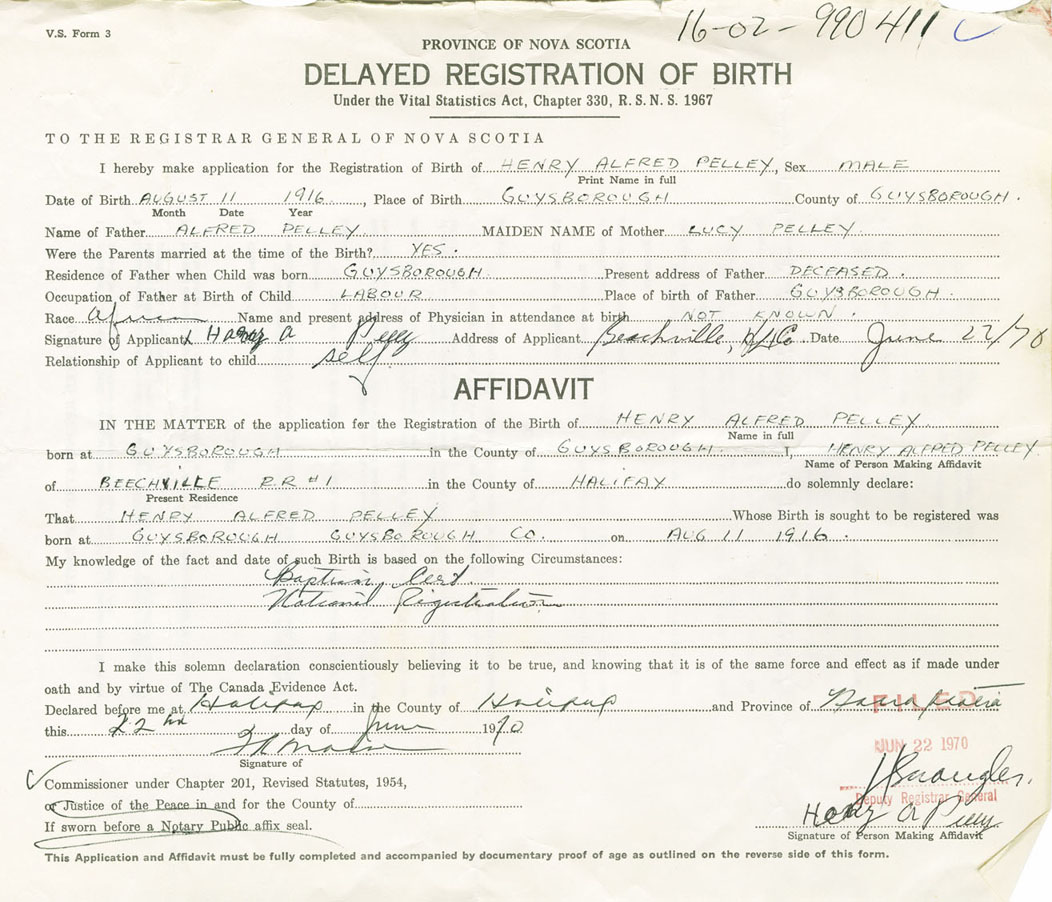 16-02-990411 C
V.S. Form 3
PROVINCE OF NOVA SCOTIA
DELAYED REGISTRATION OF BIRTH
Under the Vital Statistics Act, Chapter 330, R. S. N. S. 1967
TO THE REGISTRAR GENERAL OF NOVA SCOTIA
I hereby make application for the Registration of Birth of HENRY ALFRED PELLEY, Sex MALE
Print Name in full
Date of Birth AUGUST 11 1916, Place of Birth GUYSBOROUGH County of GUYSBOROUGH.
Month Date Year
Name of Father ALFRED PELLEY MAIDEN NAME of Mother LUCY PELLEY
Were the Parents married at the time of the Birth? YES.
Residence of Father when Child was born GUYSBOROUGH Present address of Father DECEASED.
Occupation of Father at Birth of Child LABOUR Place of birth of Father GUYSBOROUGH.
Race Name and present address of Physician in attendance at birth NOT KNOWN.
Signature of Applicant Address of Applicant Beachville, Date June 22/70
Relationship of Applicant to child self
AFFIDAVIT
IN THE MATTER of the application for the Registration of the Birth of HENRY ALFRED PELLEY
Name in full
born at GUYSBOROUGH in the County of GUYSBOROUGH I, HENRY ALFRED PELLEY
Name of Person Making Affidavit
of BEECHVILLE R.R #1 in the County of HALIFAX do solemnly declare:
Present Residence
That HENRY ALFRED PELLEY Whose Birth is sought to be registered was
born at GUYSBOROUGH GUYSBOROUGH CO. on AUG 11 1916.
My knowledge of the fact and date of such Birth is based on the following Circumstances:
Baptism Cert.
National Registration
I make this solemn declaration conscientiously believing it to be true, and knowing that it is of the same force and effect as if made under
oath and by virtue of The Canada Evidence Act.
Declared before me at Halifax in the County of Halifax and Province of Nova Scotia
FILED
this 22nd day of June 1970
JUN 22 1970
Signature of
Commissioner under Chapter 201, Revised Statutes, 1954,
Deputy Registrar General
or Justice of the Peace in and for the County of
If sworn before a Notary Public affix seal.
Signature of Person Making Affidavit
This Application and Affidavit must be fully completed and accompanied by documentary proof of age as outlined on the reverse side of this form.